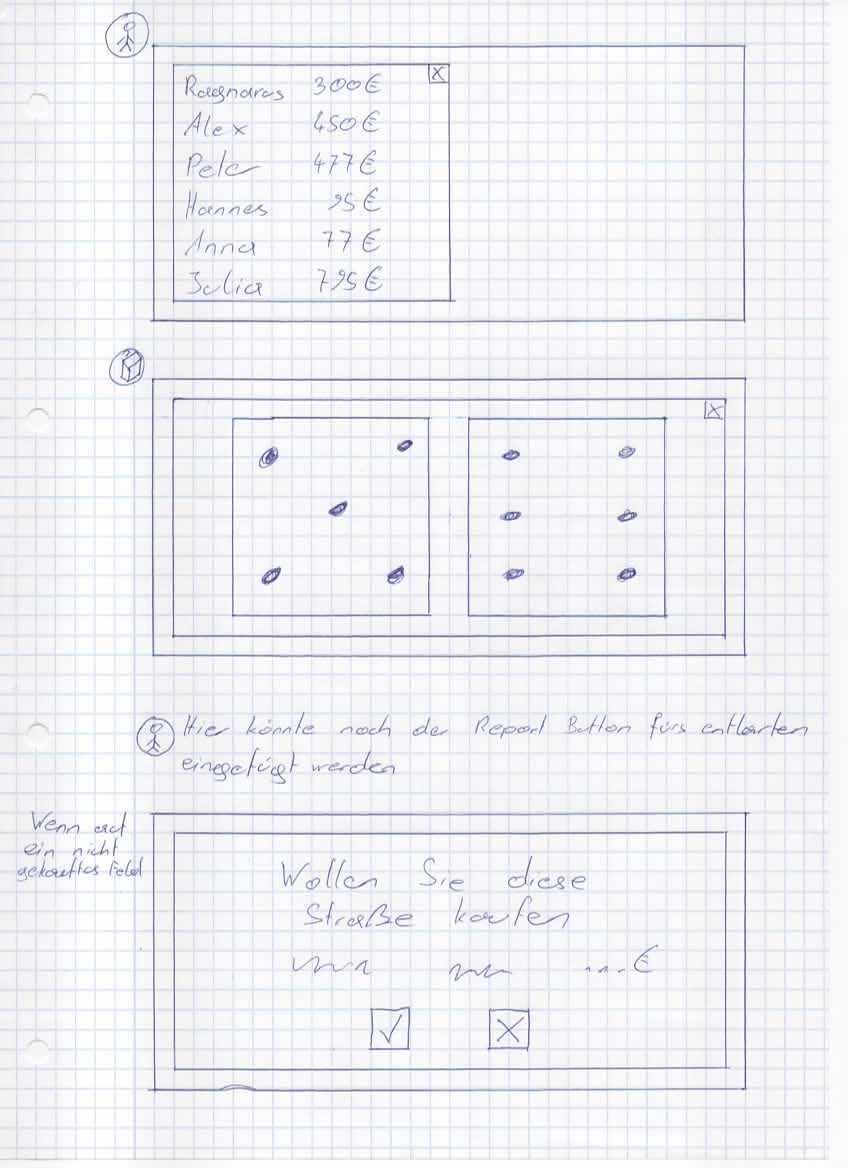 Ragnaros 300€
X
Alex 450€
Peter 477€
Hannes 95€
Anna 77€
Julia 795€
X
Hier könnte noch der Report Button fürs entlarven
eingefügt werden
Wenn auf
ein nicht
gekauftes Feld
Wollen Sie diese
Straße kaufen
...€